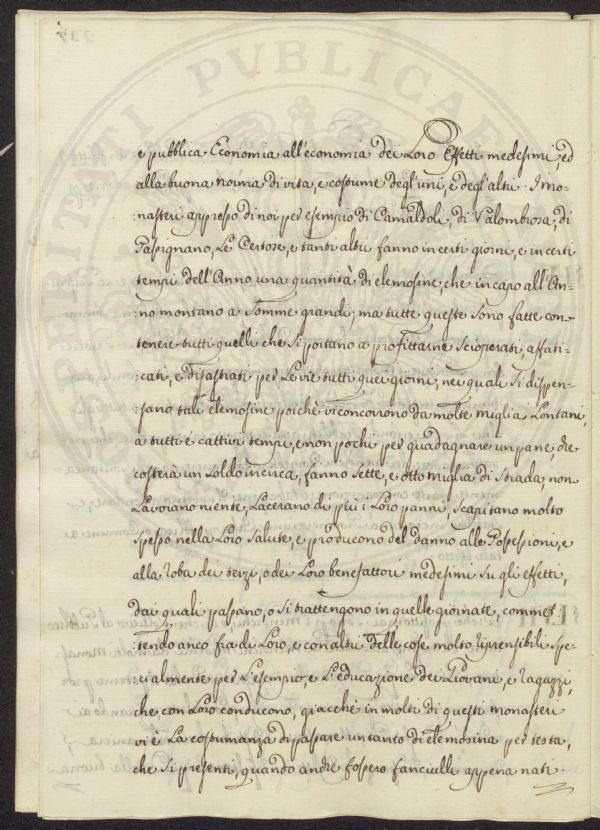 e pubblica Economia all'economia dei Loro Effetti medesimi, ed
alla buona norma di vita, e costume degl'uni, e degl'altri. I mo-
:nasteri appresso di noi per esempio di Camaldoli, di Valombrosa, di
Passignano, Le Certose, e tanti altri fanno in certi giorni, e in certi
tempi dell'Anno una quantità di elemosine, che in capo all'An-
:no montano a Somme grandi; ma tutte queste Sono fatte con
tenere tutti quelli che si portano a profittarne Scioperati, affati-
:cati, e disastrati per Le vie tutti quei giorni, nei quali Si dispen-
:sano tali elemosine poichè vi concorrono da molte miglia Lontani,
a tutti i cattivi tempi, e non pochi per guadagnare un pane, che
costerà un Soldo incirca, fanno Sette, e otto miglia di Strada, non
Lavorano niente, Lacerano di più i Loro panni, Scapitano molto
spesso nella Loro Salute, e producono del danno alle Possessioni, e
alla roba dei terzi, o dei Loro benefattori medesimi Su gli effetti,
dai quali passano, o Si trattengono in quelle giornate, commet-
:tendo anco fra di Loro, e con altri delle cose molto riprensibili Spe-
:cialmente per L'esempio, e L'educazione dei Giovani, e ragazzi,
che con Loro conducono, giacchè in molti di questi monasteri
vi è La costumanza di passare un tanto di elemosina per testa,
che Si presenti, quando anche fossero fanciulli appena nati.